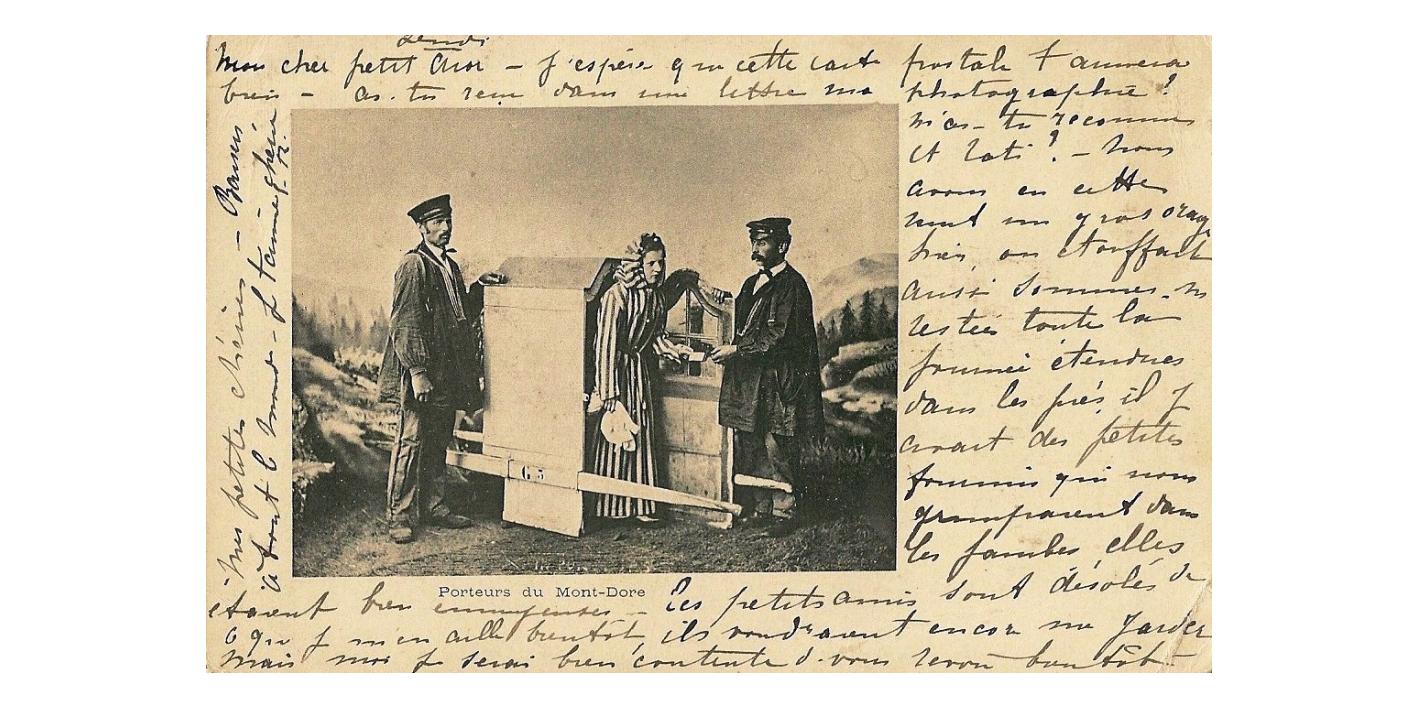 Lundi
Mon cher petit – j'espère que cette carte postale t'amusera
bien – as-tu reçu dans une lettre ma photographie ?
m'as-tu reconnue
et ? – nous
avons eu cette
nuit un gros orage
hier, on étouffait
aussi sommes-ns
restées toute la
journée étendues
dans les prés, il y
avait des petites
fourmis qui nous
grimpaient dans
les jambes elles
étaient bien ennuyeuses – Les petits amis sont désolés de
ce que je m'en aille bientôt, ils voudraient encore me garder
mais moi je serai bien contente de vous revoir bientôt –
Mes petites chéries – Baisers
à tout le monde – je t'aime chérie
Porteurs du Mont-Dore
63